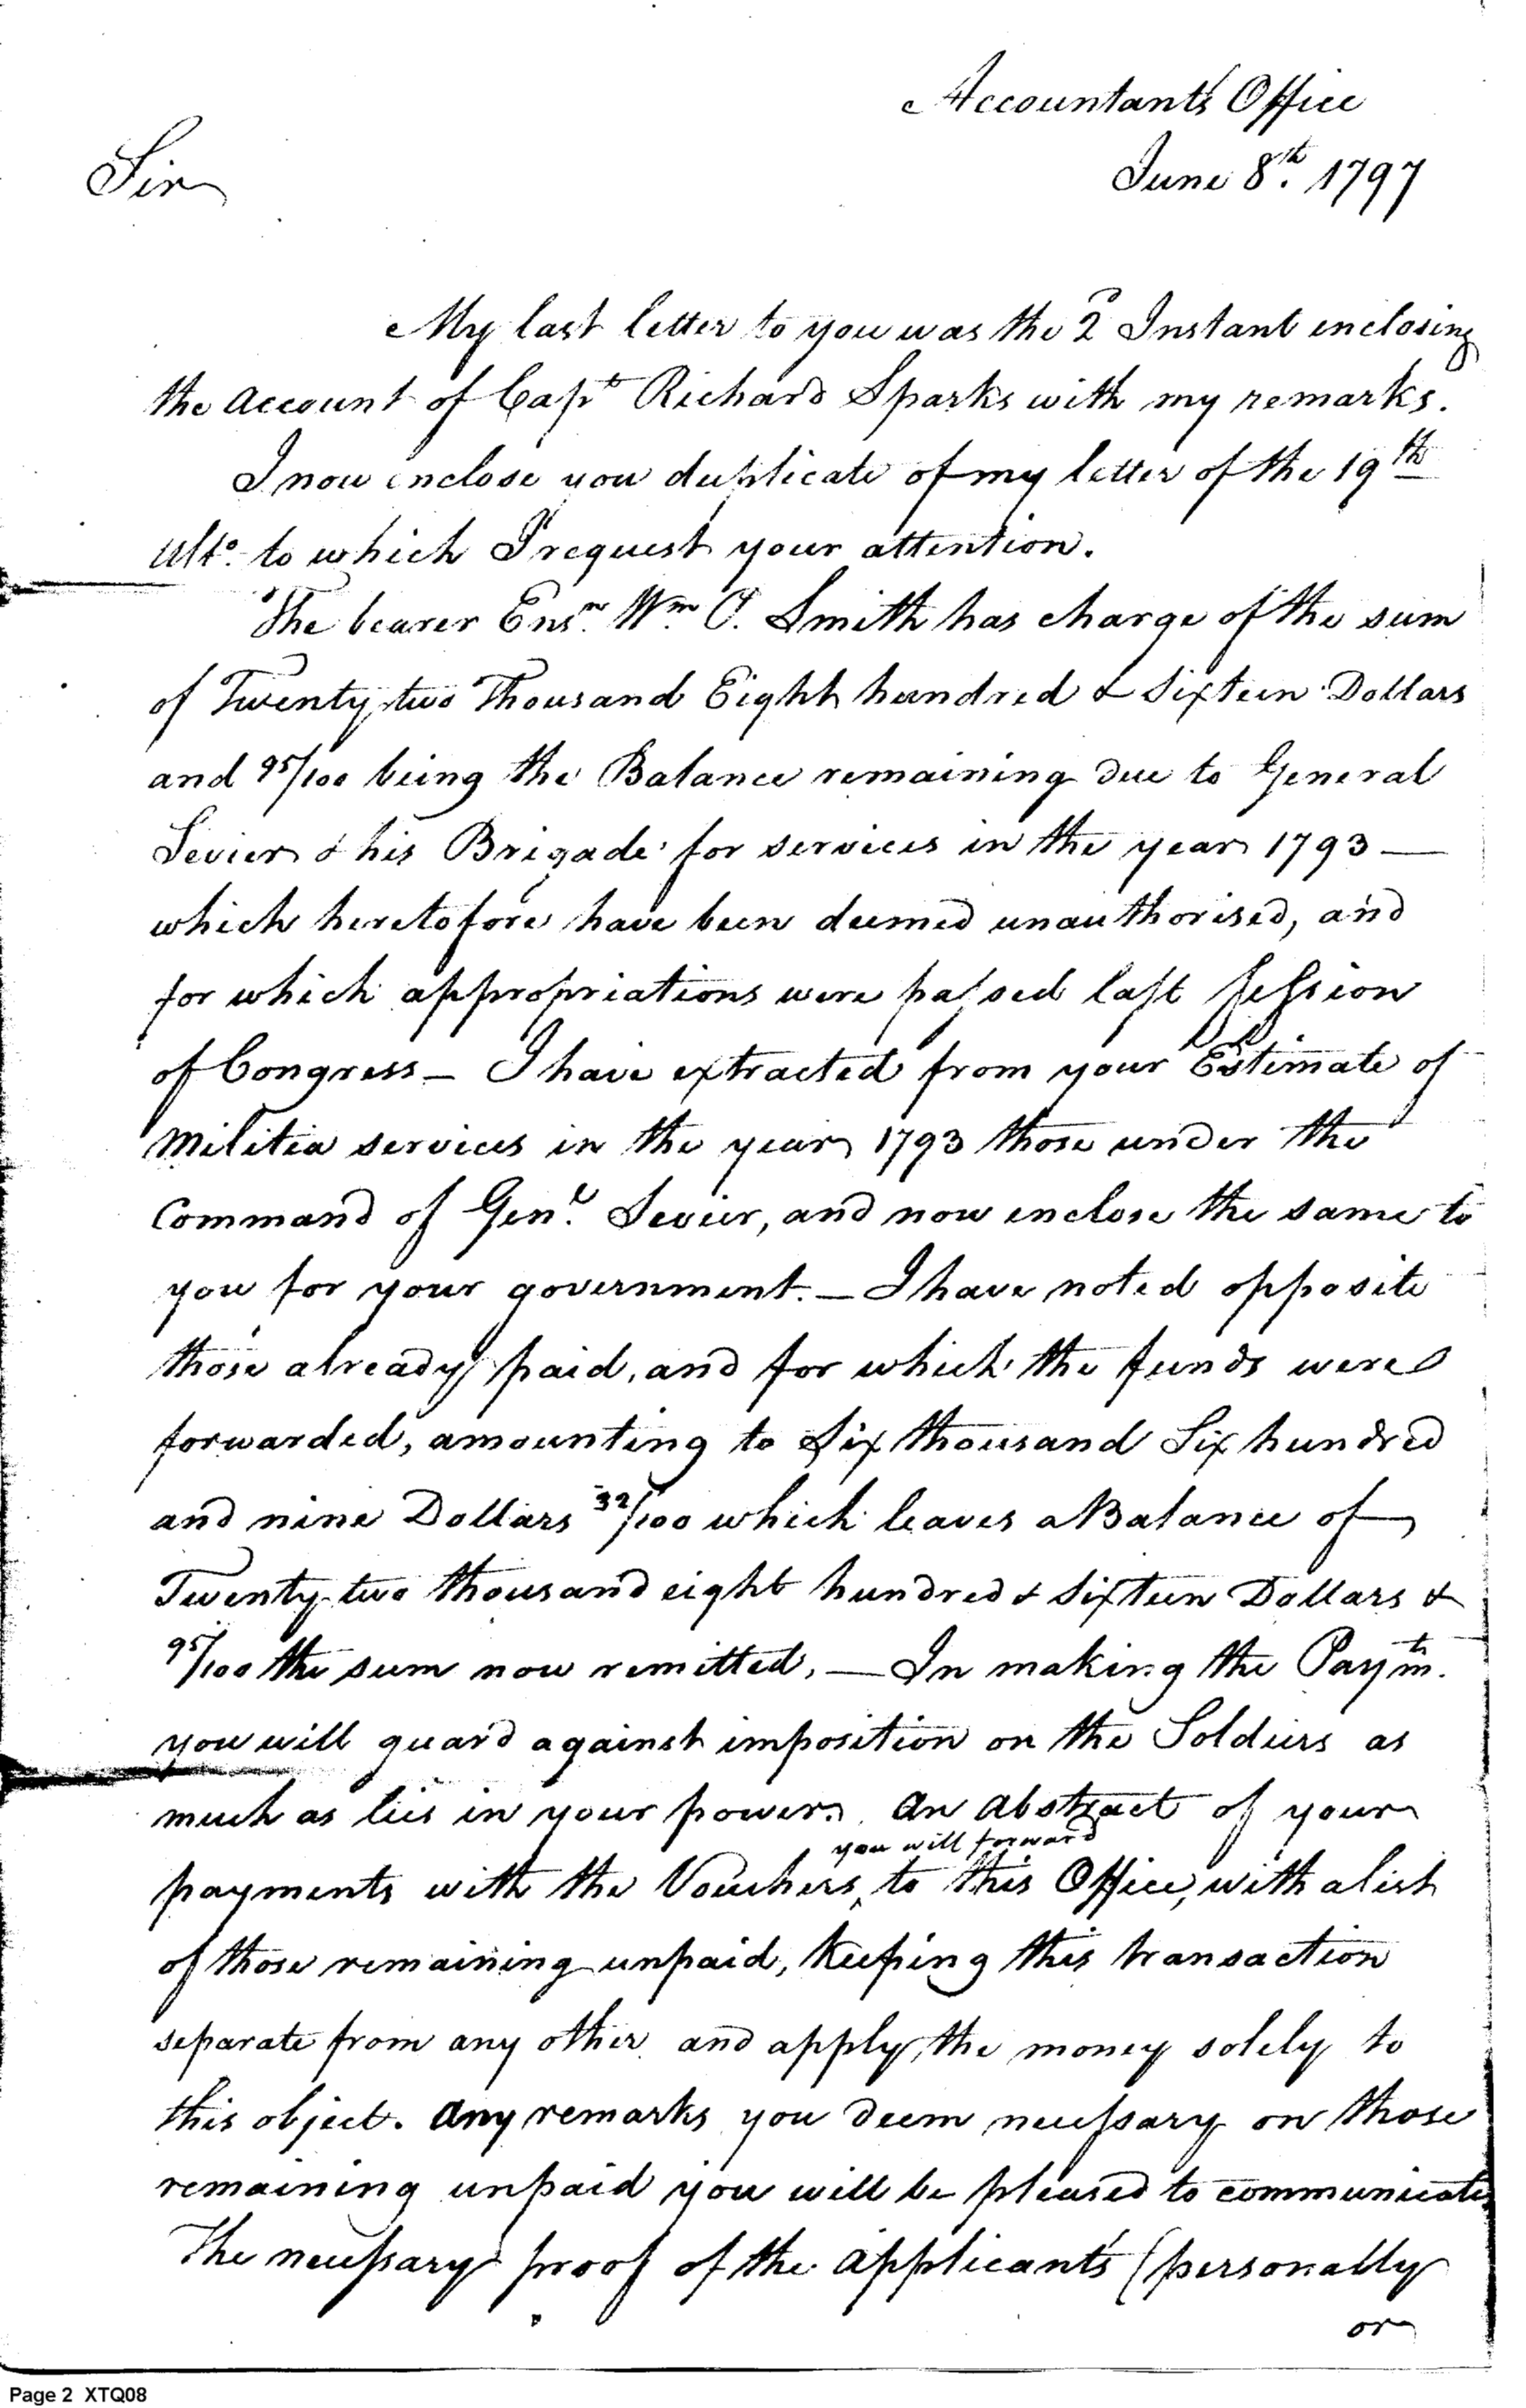 Accountants Office
June 8th. 1797
Sir
My last letter to you was the 2d Instant enclosing
the account of Capt Richard Sparks with my remarks.
I now enclose you duplicate of my letter of the 19th
Ulto. to which I request your attention.
The bearer Ensn. Wm C. Smith has charge of the sum
of Twenty two Thousand Eight hundred & Sixteen Dollars
and 95/100 being the Balance remaining due to General
Sevier & his Brigade for services in the year 1793 —
which heretofore have been deemed unauthorised, and
for which appropriations were passed last Session
of Congress — I have extracted from your Estimate of
Militia services in the year 1793 those under the
Command of Genl. Sevier, and now enclose the same to
you for your government. — I have noted opposite
those already paid, and for which the funds were
forwarded, amounting to Six thousand Six hundred
and nine Dollars 32/100 which leaves a Balance of
Twenty two thousand eight hundred & Sixteen Dollars &
95/100 the sum now remitted. — In making the Paymt.
you will guard against imposition on the Soldiers as
much as lies in your power. An abstract of your
you will forward
payments with the Vouchers ‸ to this Office, with a list
of those remaining unpaid, keeping this transaction
separate from any other and apply the money solely to
this object. Any remarks you deem necessary on those
remaining unpaid you will be pleased to communicate
The necessary proof of the applicants (personally
or
Page 2 XTQ08